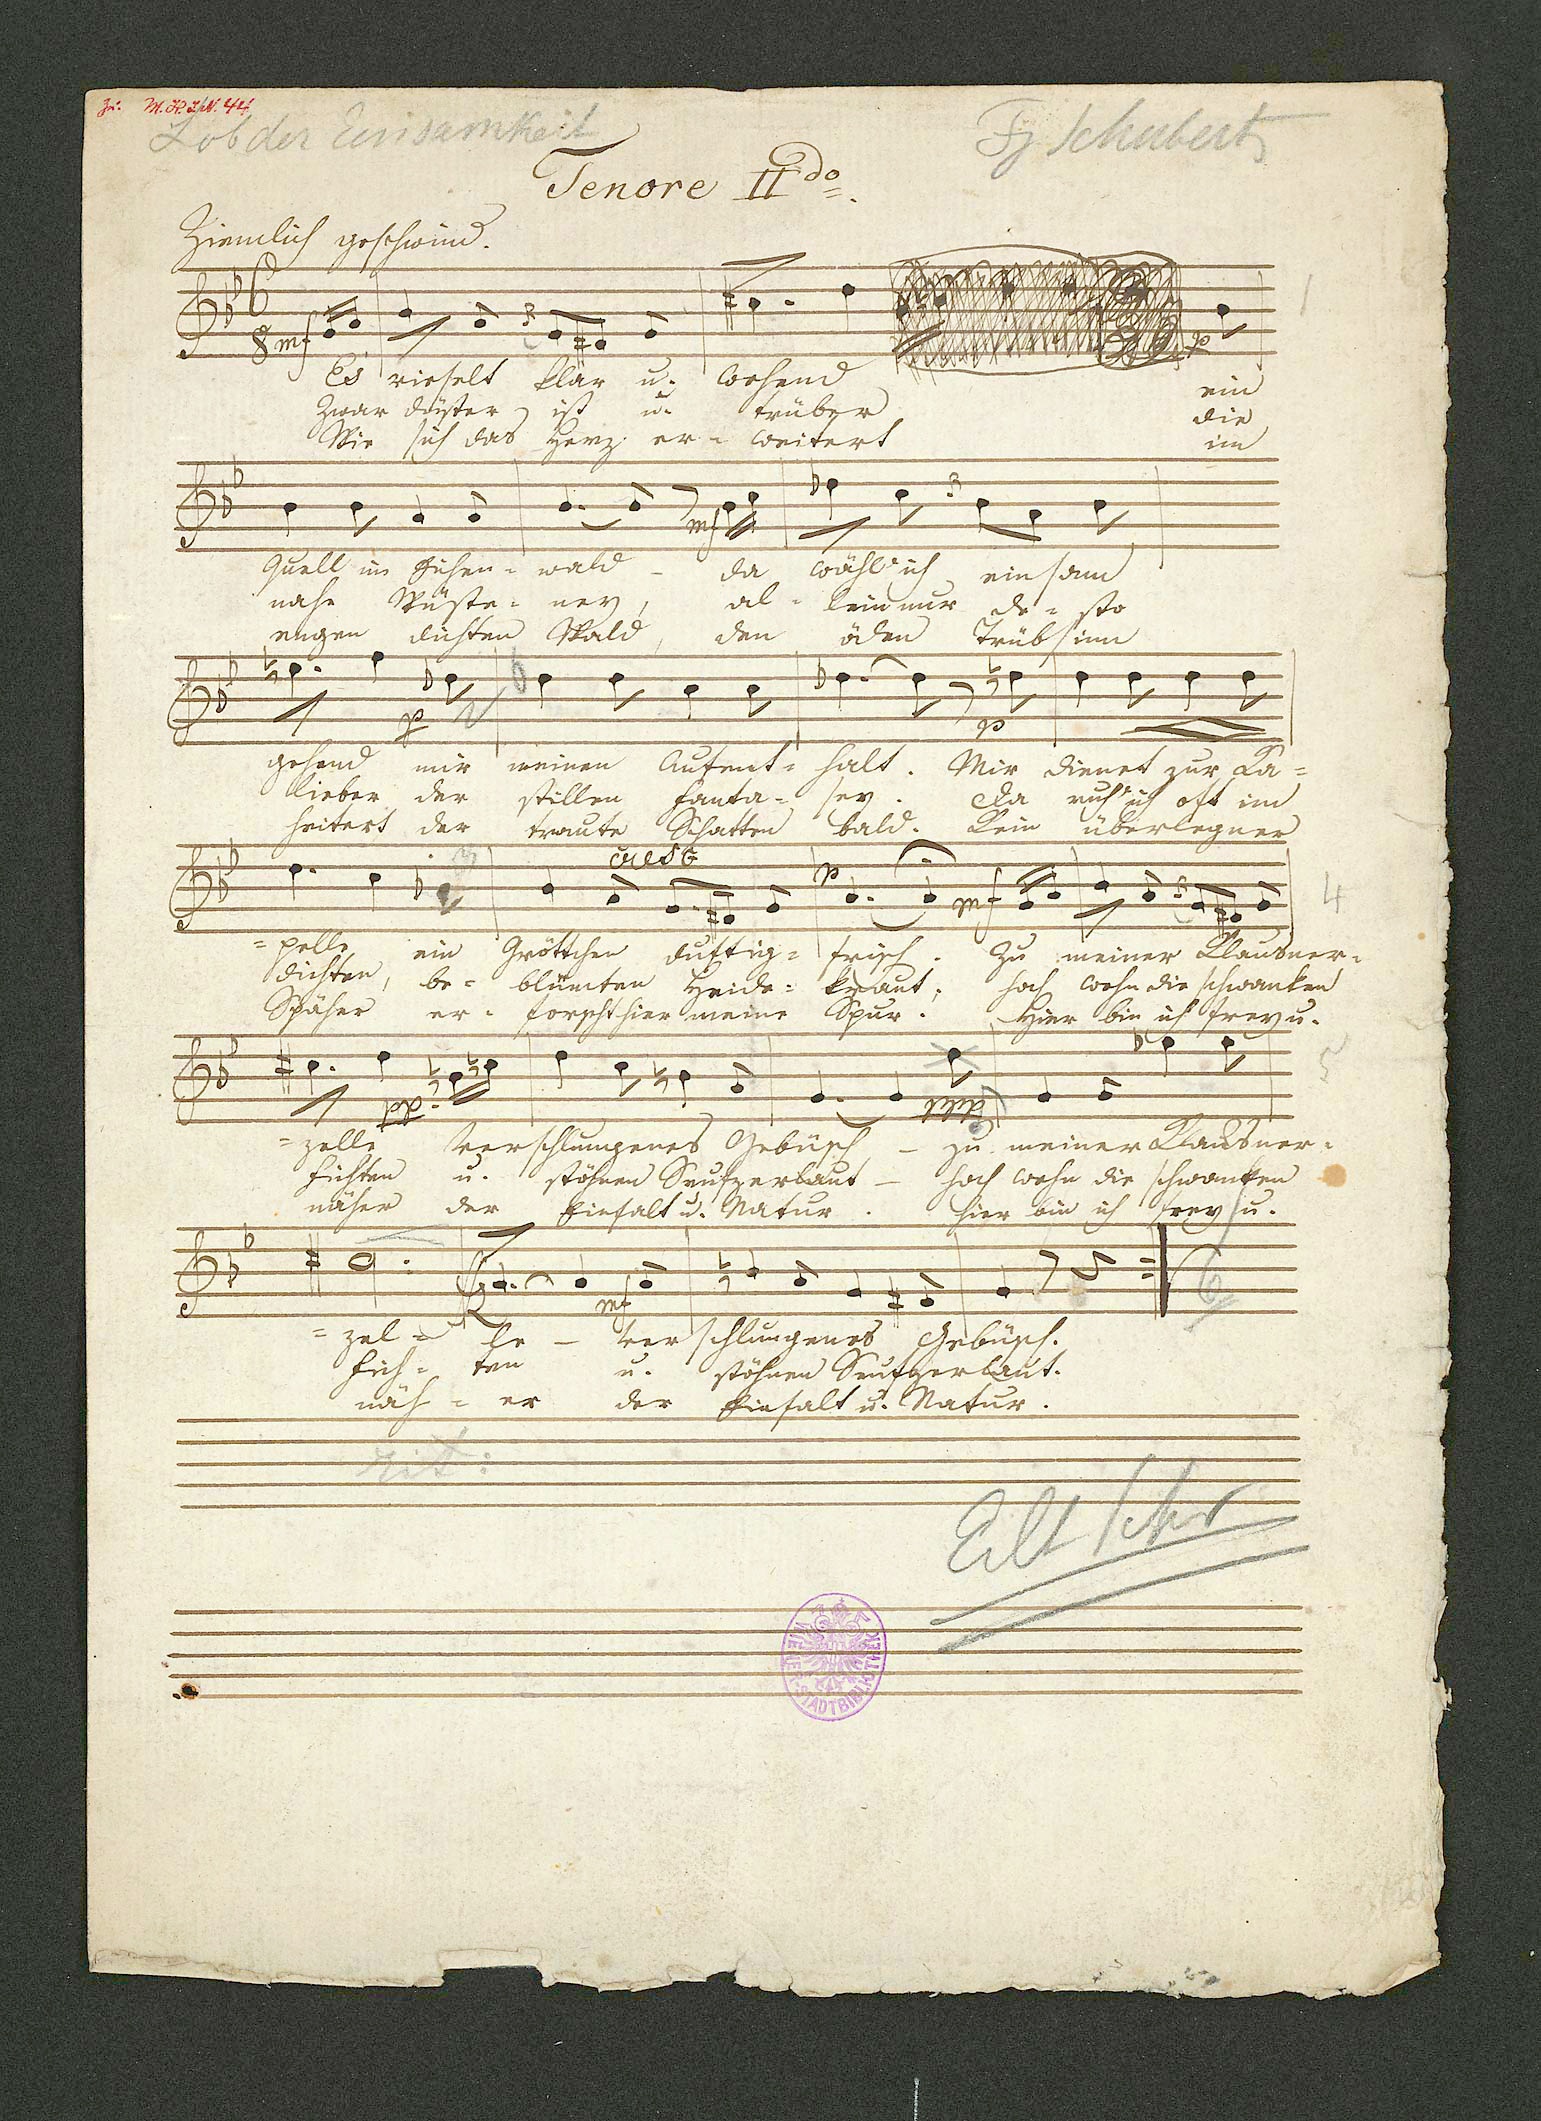 Zu: M.H. I.N. 44
Lob der Einsamkeit
Fz Schubert
Tenore IIdo.
Ziemlich geschwind.
1
mf p
Es rieselt klar u. wehend ein
Zwar düster ist u. trüber die
Wie sich das Herz er- weitert im
mf
Quell im Eichen- wald – da wähl' ich einsam
nahe Wüste- ney, al- lein nur de- sto
engen dichten Wald, den öden Trübsinn
p 2 p
gehend mir meinen Aufent- halt. Mir dienet zur Ka-
lieber der stillen Fanta- sey. Da ruh' ich oft im
heitert der traute Schatten bald. Kein überlegner
3 cresc p mf 4
-pelle, ein Gröttchen duftig- frisch. Zu meiner Klausner-
dichten, be- blümten Heide- kraut; hoch wehn die schwanken
Späher er- forscht hier meine Spur. Hier bin ich frey u.
pp 5
-zelle verschlungenes Gebüsch – zu meiner Klausner-
Fichten u. stöhnen Seufzerlaut – hoch wehn die schwanken
näher der Einfalt u. Natur. hier bin ich frey u.
mf 6
-zel- le – verschlungenes Gebüsch.
Fich- ten u. stöhnen Seufzerlaut.
näh- er der Einfalt u. Natur.
rit:
WIENER STADTBIBLIOTHEK